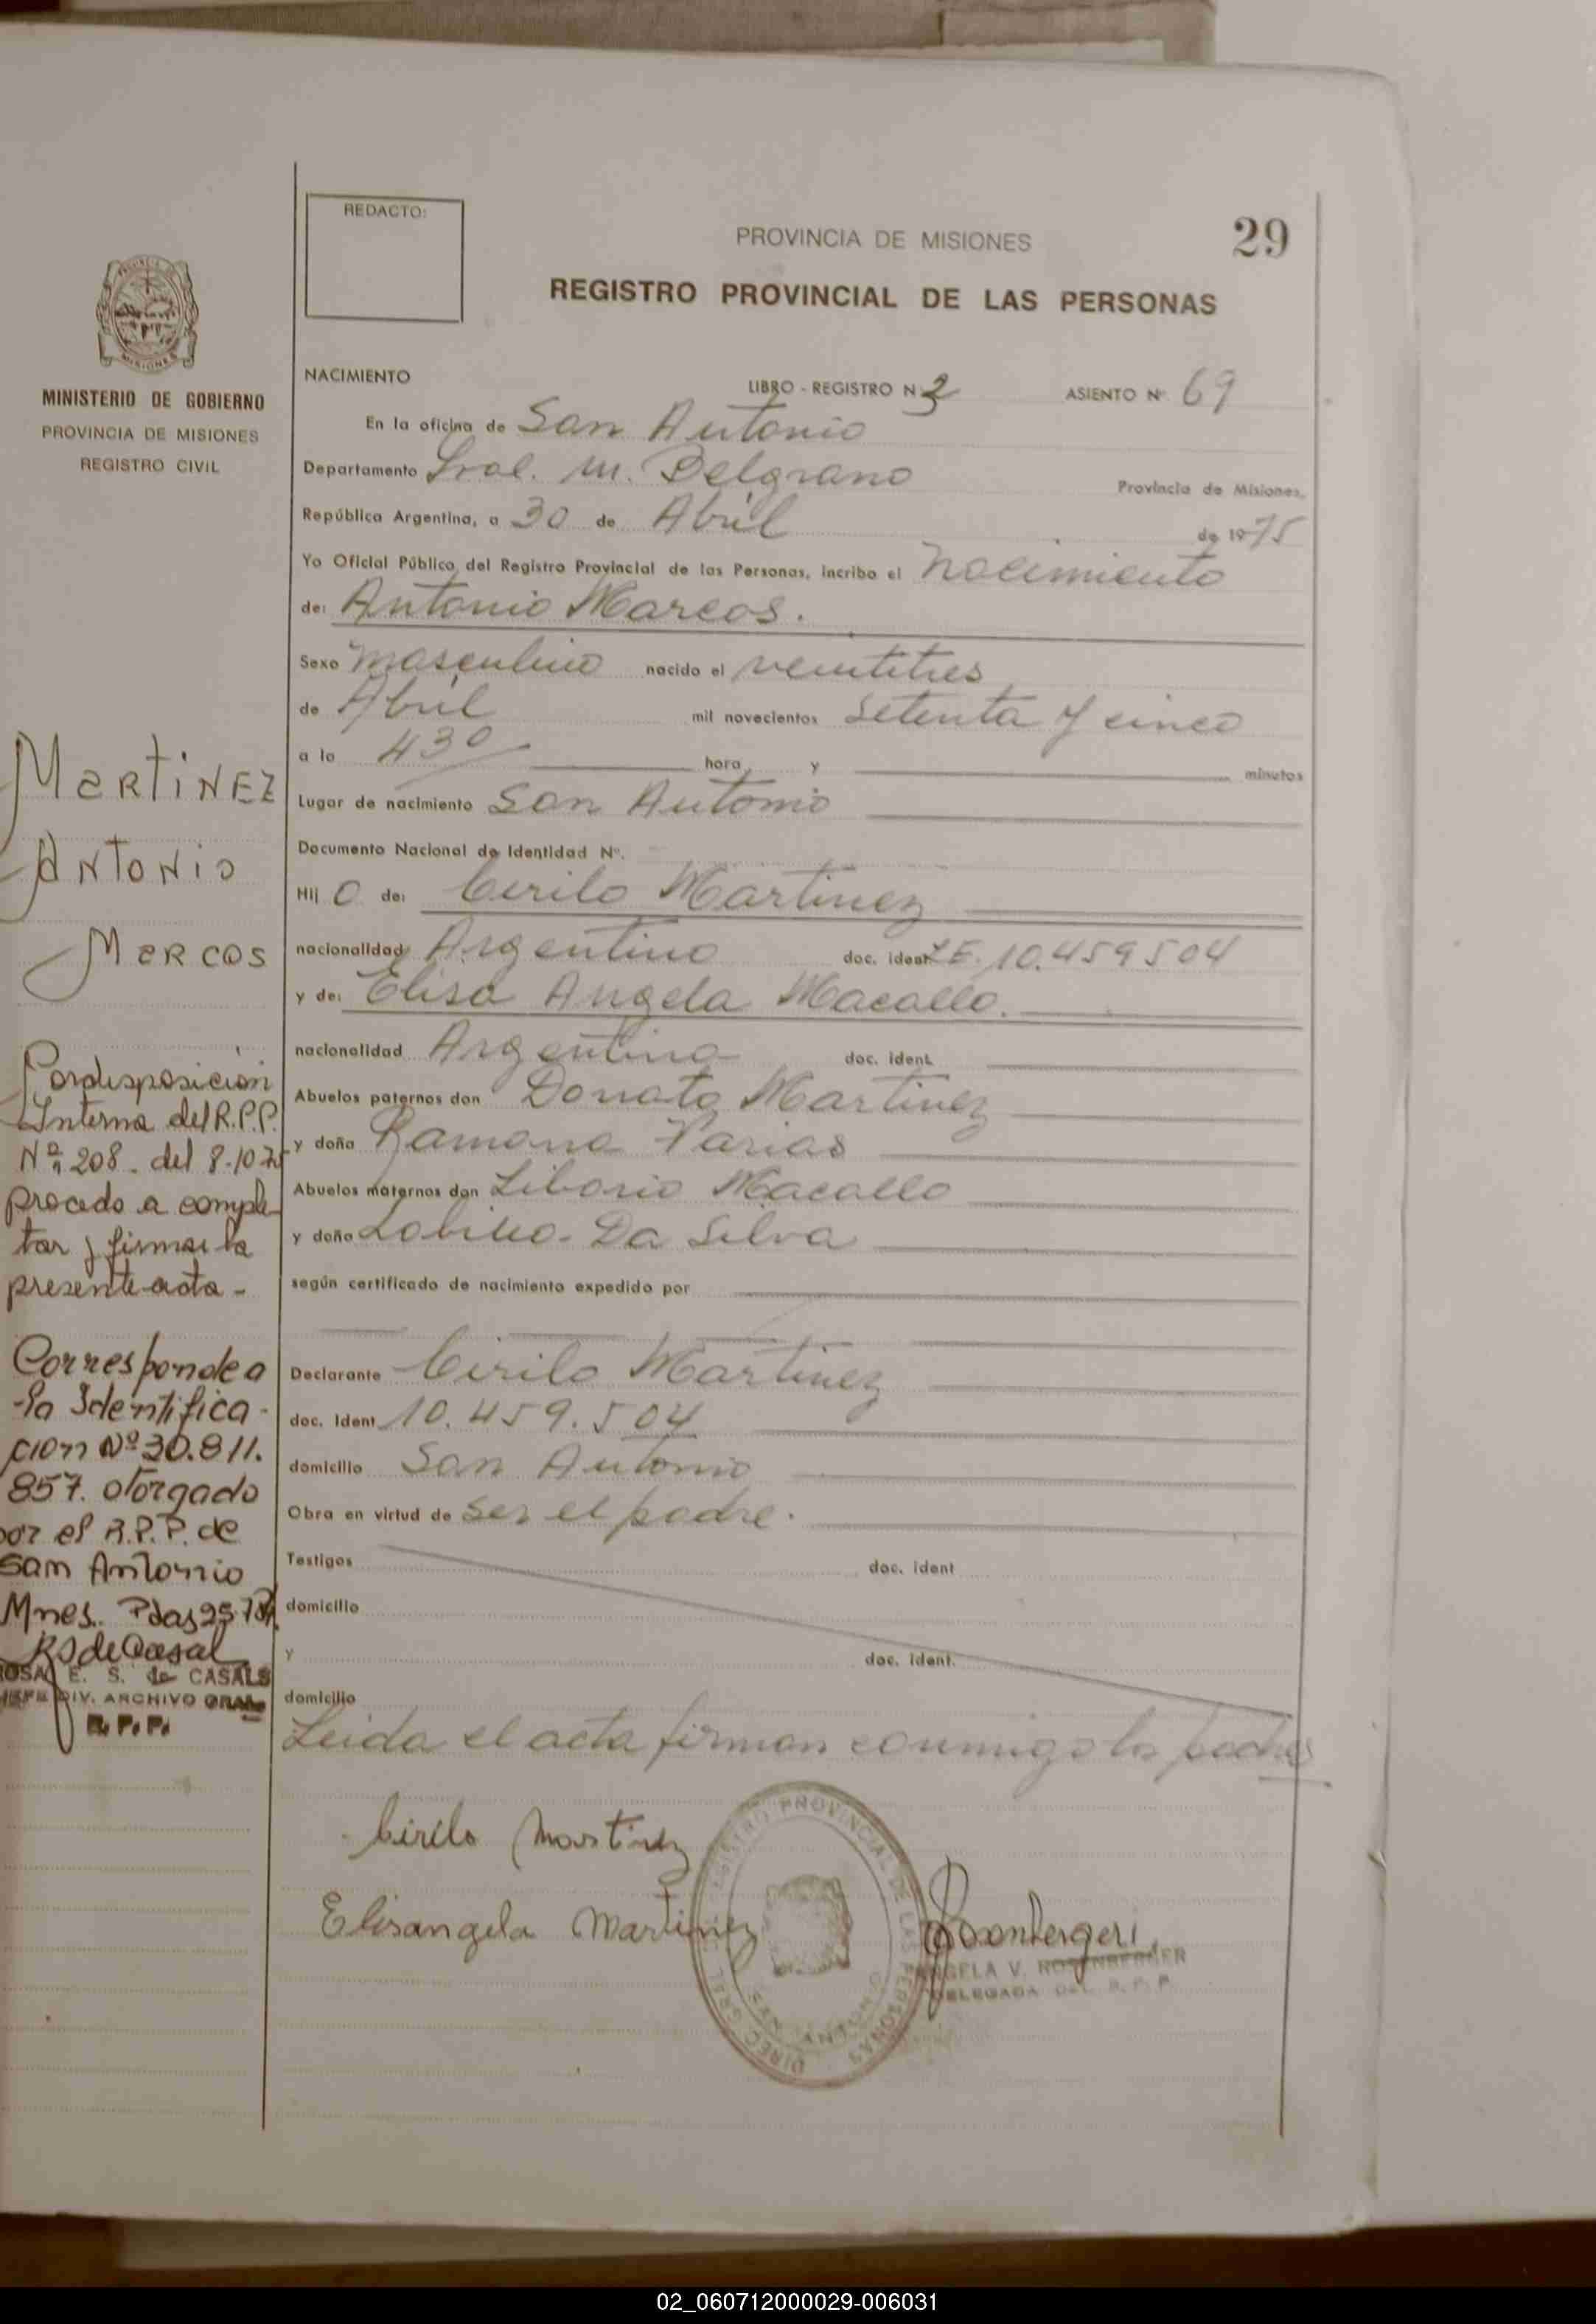 REDACTO:
PROVINCIA DE MISIONES
29
REGISTRO PROVINCIAL DE LAS PERSONAS
MINISTERIO DE GOBIERNO
PROVINCIA DE MISIONES
REGISTRO CIVIL
NACIMIENTO LIBRO - REGISTRO Nº ASIENTO Nº 69
En la oficina de San Antonio
Departamento Gral. M. Belgrano Provincia de Misiones,
República Argentina, a 30 de Abril de 1975
Yo Oficial Público del Registro Provincial de las Personas, incribo el nacimiento
de: Antonio Marcos.
Sexo masculino nacido el veintitres
de Abril mil novecientos setenta y cinco
a la 4 30 hora y minutos
Lugar de nacimiento San Antonio
Documento Nacional de Identidad Nº.
Hij o de: Cirilo Martinez
nacionalidad Argentino doc. ident. LE. 10.459504
y de: Elisa Angela Macallo.
nacionalidad Argentina doc. ident.
Abuelos paternos don Donato Martinez
y doña Ramona Farias
Abuelos maternos don Liborio Macallo
y doña Da Silva
según certificado de nacimiento expedido por
Declarante Cirilo Martinez
doc. ident 10.459.504
domicilio San Antonio
Obra en virtud de ser el padre.
Testigos doc. ident
domicilio
y doc. ident.
domicilio
Leida el acta firman conmigo los padres
Cirilo Martinez
Elisangela Martinez
Rosenberger
ANGELA V. ROSENBERGER
DELEGADA DEL R. P. P.
DIREC. GRAL. REGISTRO PROVINCIAL DE LAS PERSONAS
SAN ANTONIO
MARTINEZ
ANTONIO
MARCOS
Por disposición
Interna del R.P.P.
Nº 208 - del 8-10-75
procedo a comple-
tar y firmar la
presente acta -
Corresponde a
la Identifica-
cion Nº 30.811.
857. otorgado
por el R.P.P. de
San Antonio
Mnes. Pdas
RS de Casals
ROSA E. S. de CASALS
JEFE DIV. ARCHIVO GRAL
R. P. P.
02_060712000029-006031